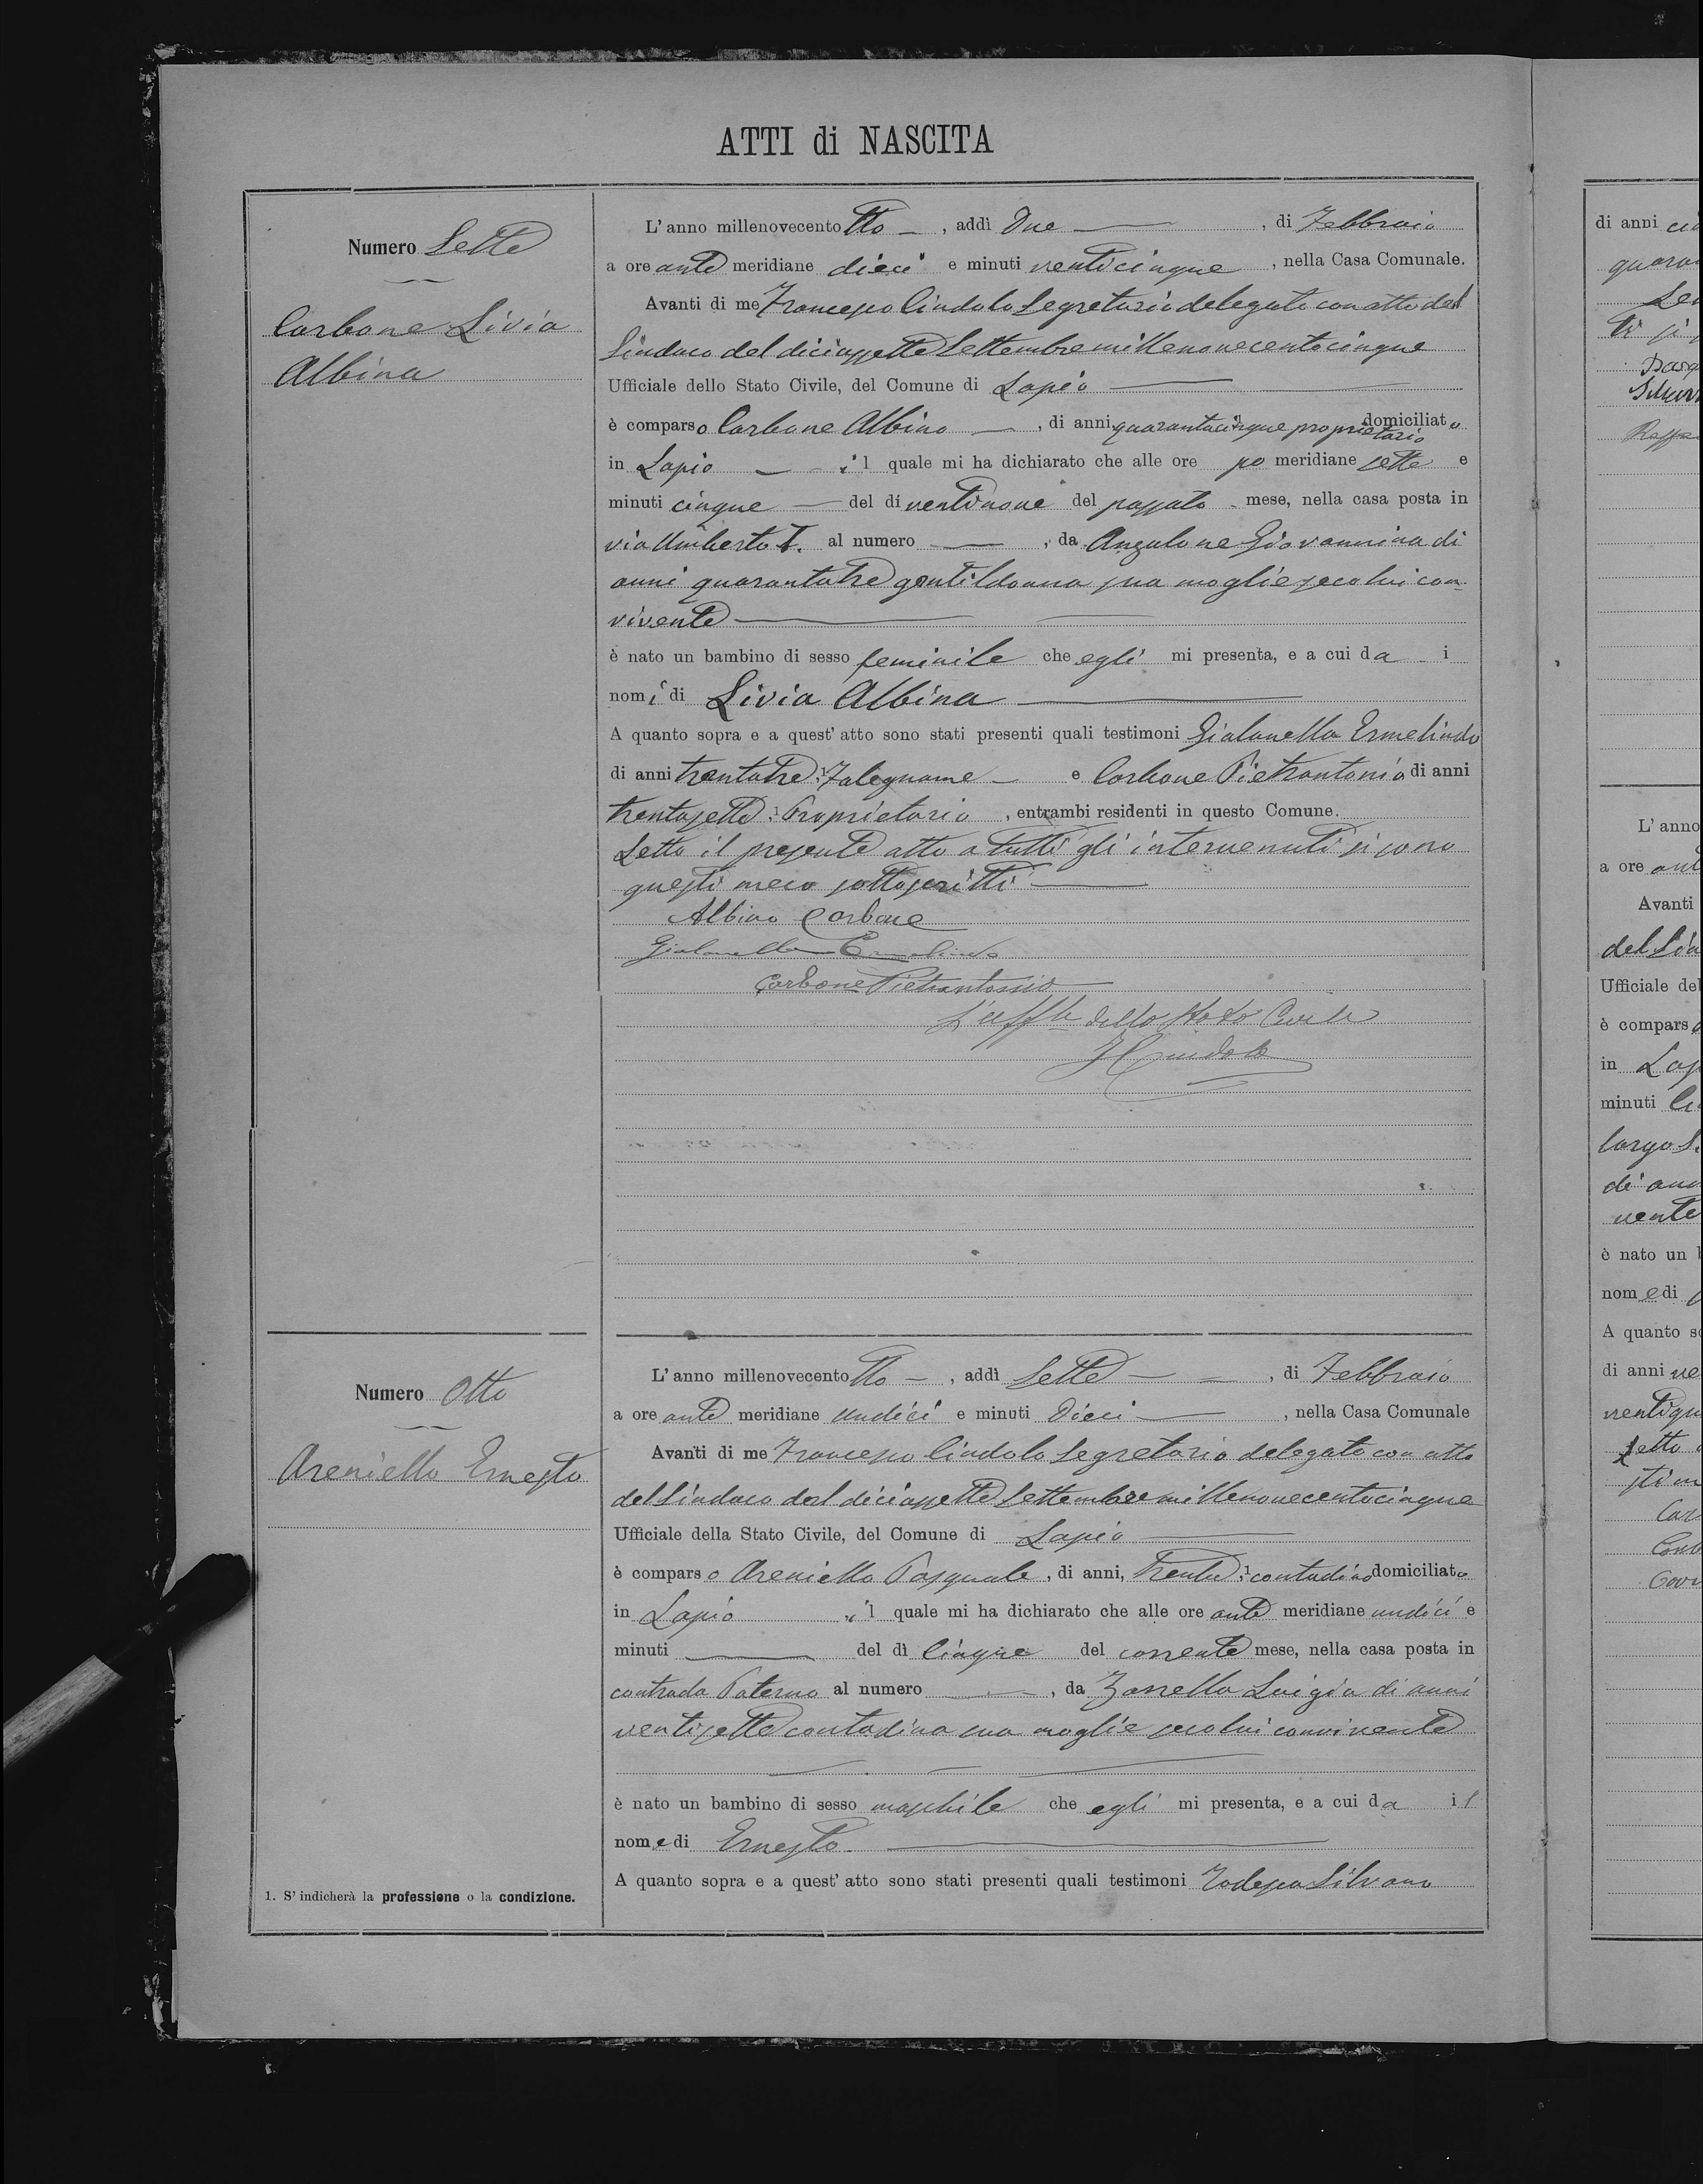 ATTI di NASCITA
Numero Sette
Carbone Livia
Albina
L'anno millenovecento tto, addì Due, di Febbraio
a ore ante meridiane dieci e minuti venticinque, nella Casa Comunale.
Avanti di me Francesco Cindolo Segretario delegato con atto del
Sindaco del diciassette Settembre millenovecentocinque
Ufficiale dello Stato Civile, del Comune di Lapio
è comparso Carbone Albino, di anni quarantacinque proprietario domiciliato
in Lapio il quale mi ha dichiarato che alle ore po meridiane sette e
minuti cinque del dì ventinove del passato mese, nella casa posta in
via Umberto I. al numero, da Anzalone Giovannina di
anni quarantatre gentildonna sua moglie seco lui con-
vivente
è nato un bambino di sesso feminile che egli mi presenta, e a cui da i
nomi di Livia Albina
A quanto sopra e a quest'atto sono stati presenti quali testimoni Gialanella Ermelindo
di anni trentatre, Falegname e Carbone Pietrantonio di anni
trentasette, Proprietario, entrambi residenti in questo Comune.
Letto il presente atto a tutti gli intervenuti si sono
questi meco sottoscritti
Albino Carbone
Gialanella Ermelindo
Carbone Pietrantonio
L'uff.le dello Stato Civile
F Cindolo
Numero Otto
Areniello Ernesto
L'anno millenovecento tto, addì Sette, di Febbraio
a ore ante meridiane undici e minuti Dieci, nella Casa Comunale
Avanti di me Francesco Cindolo Segretario delegato con atto
del Sindaco del diciassette Settembre millenovecentocinque
Ufficiale della Stato Civile, del Comune di Lapio
è comparso Areniello Pasquale, di anni, trenta, contadino domiciliato
in Lapio il quale mi ha dichiarato che alle ore ante meridiane undici e
minuti del dì Cinque del corrente mese, nella casa posta in
contrada Paterno al numero, da Zarrella Luigia di anni
ventisette contadina sua moglie seco lui convivente
è nato un bambino di sesso maschile che egli mi presenta, e a cui da il
nome di Ernesto.
A quanto sopra e a quest'atto sono stati presenti quali testimoni Todesca Silvano
1. S'indicherà la professione o la condizione.
di anni
L'anno
a ore ant
Avanti
del Sin
Ufficiale del
è compars
in Lap
minuti
largo S.
di ann
vente
è nato un b
nome di
A quanto so
di anni ve
ventiqu
Letto